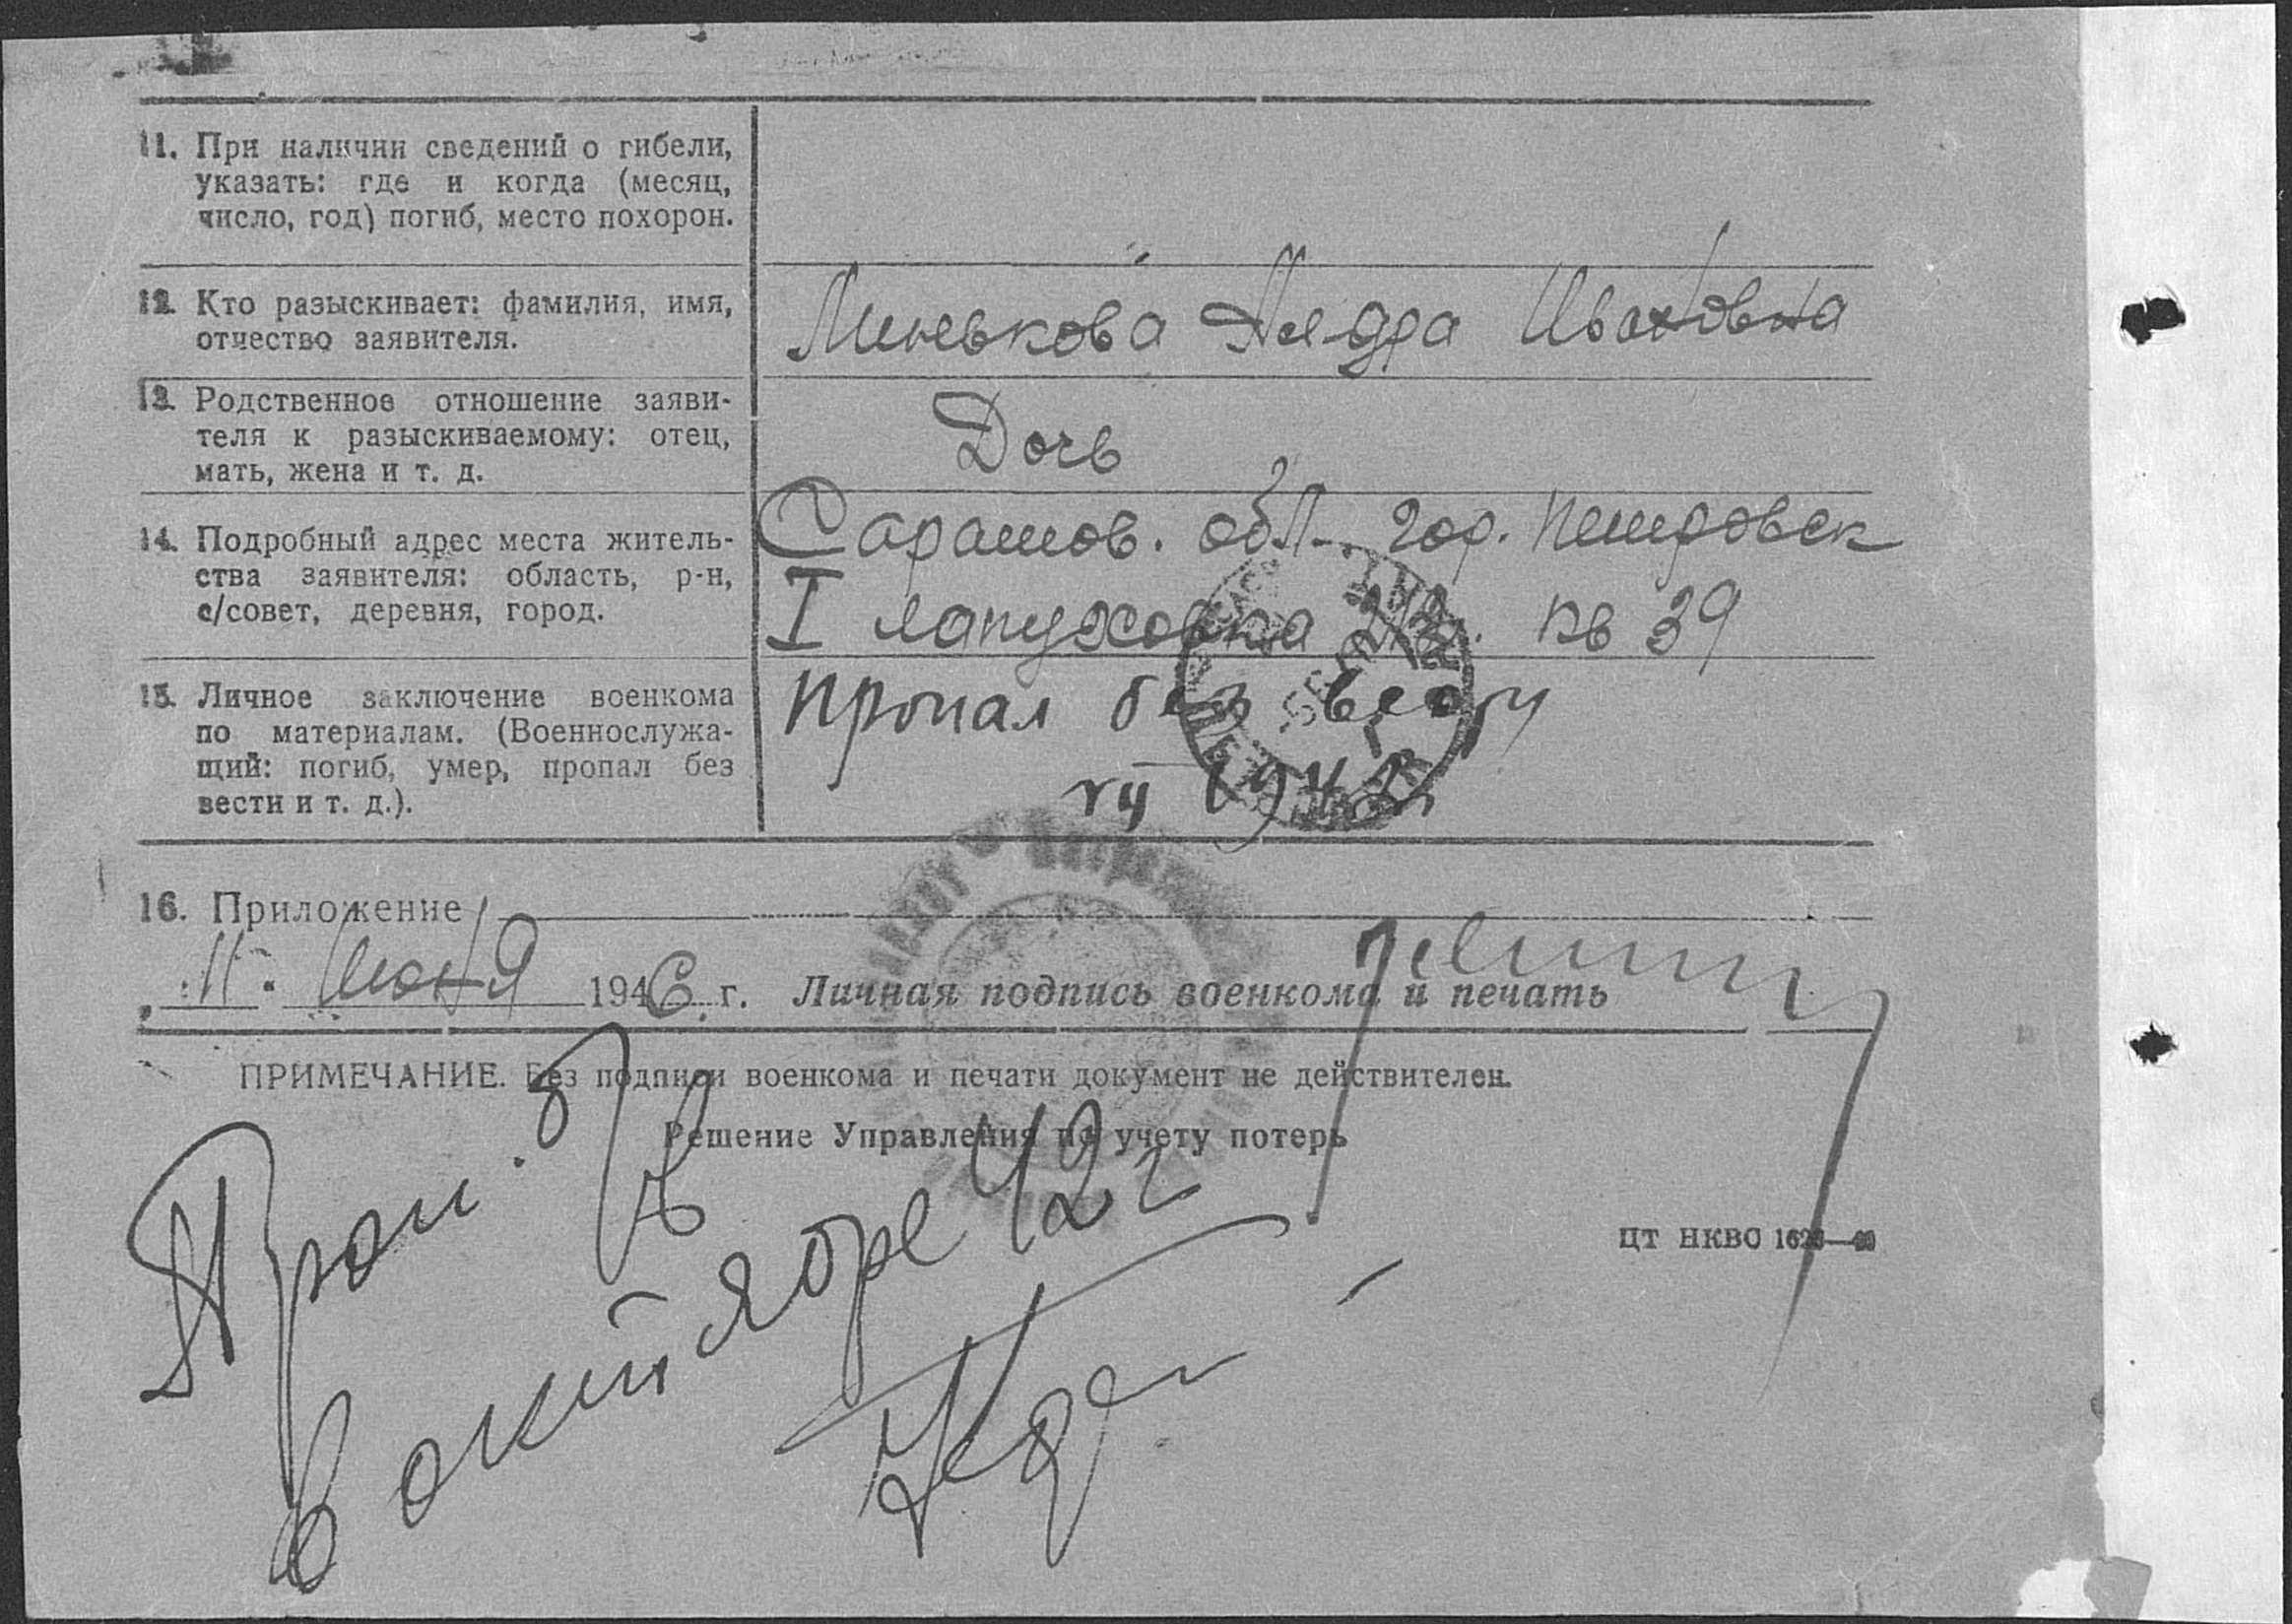 11. При наличии сведений о гибели,
указать: где и когда (месяц,
число, год) погиб, место похорон.
12. Кто разыскивает: фамилия, имя,
отчество заявителя.
Миневкова Ивановна
13. Родственное отношение заяви-
теля к разыскиваемому: отец,
мать, жена и т. д.
Дочь
14. Подробный адрес места житель-
ства заявителя: область, р-н,
с/совет, деревня, город.
Саратов. обл. гор. Петровск
I лапуховка кв 39
15. Личное заключение военкома
по материалам. (Военнослужа-
щий: погиб, умер, пропал без
вести и т. д.).
Пропал без вести
16. Приложение
11. Июня 1946 г. Личная подпись военкома и печать
ПРИМЕЧАНИЕ. Без подписи военкома и печати документ не действителен.
Решение Управления по учету потерь
Проп. б/в
в октябре 42 г
ЦТ НКВС